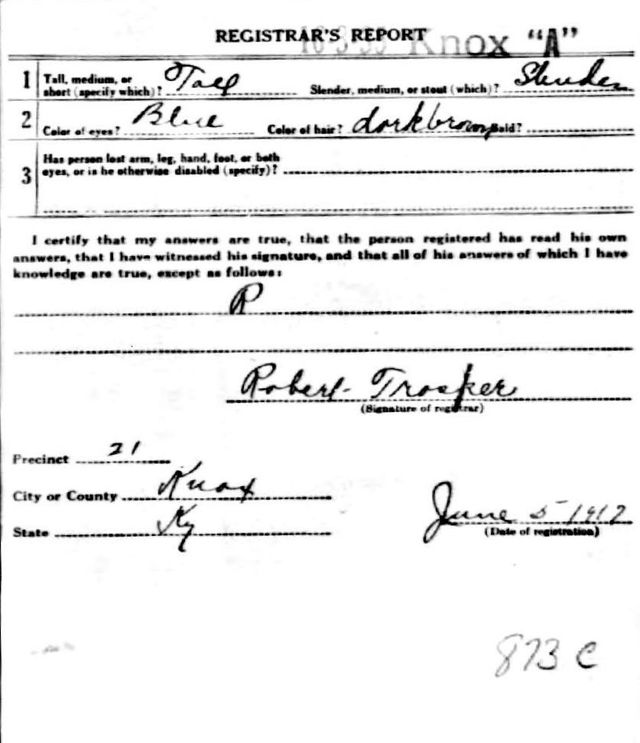 REGISTRAR'S REPORT
16-3-33 Knox "A"
1 Tall, medium, or short (specify which)? Tall Slender, medium, or stout (which)? Slender
2 Color of eyes? Blue Color of hair? darkbrown Bald?
3 Has person lost arm, leg, hand, foot, or both
eyes, or is he otherwise disabled (specify)?
I certify that my answers are true, that the person registered has read his own
answers, that I have witnessed his signature, and that all of his answers of which I have
knowledge are true, except as follows:
R
Robert Trosper
(Signature of registrar)
Precinct 21
City or County Knox
State Ky
June 5-1917
(Date of registration)
873 C